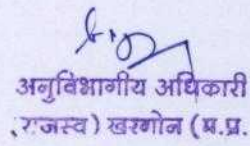 अनुविभागीय अधिकारी
(राजस्व) खरगोन (म.प्र.